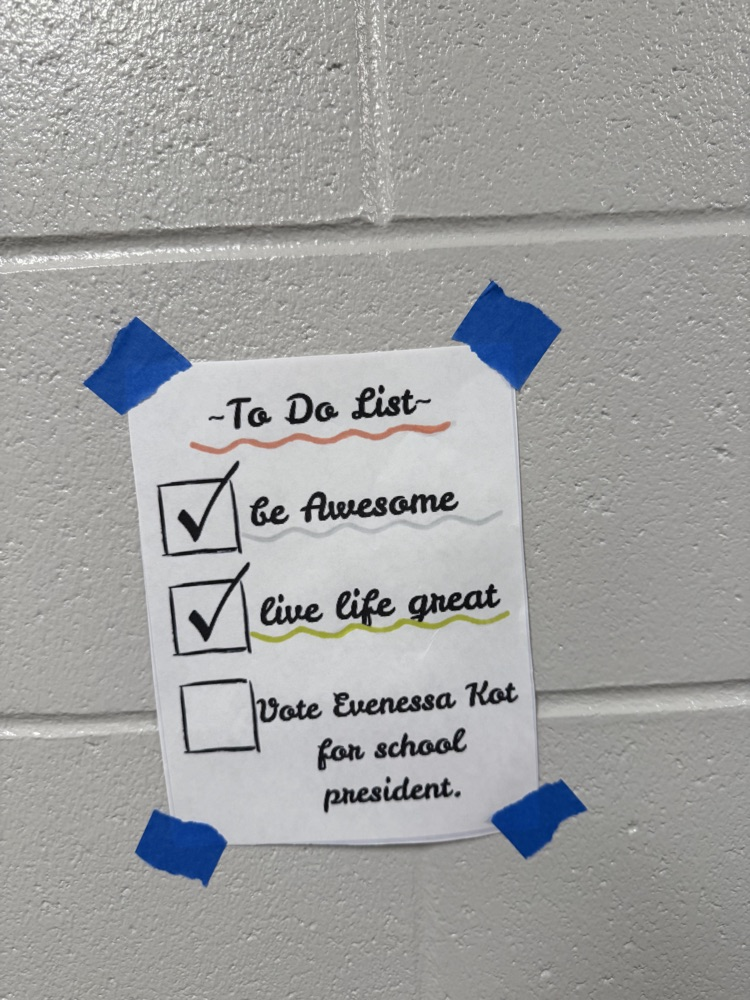 ~To Do List~
be Awesome
live life great
Vote Evenessa Kot
for school
president.